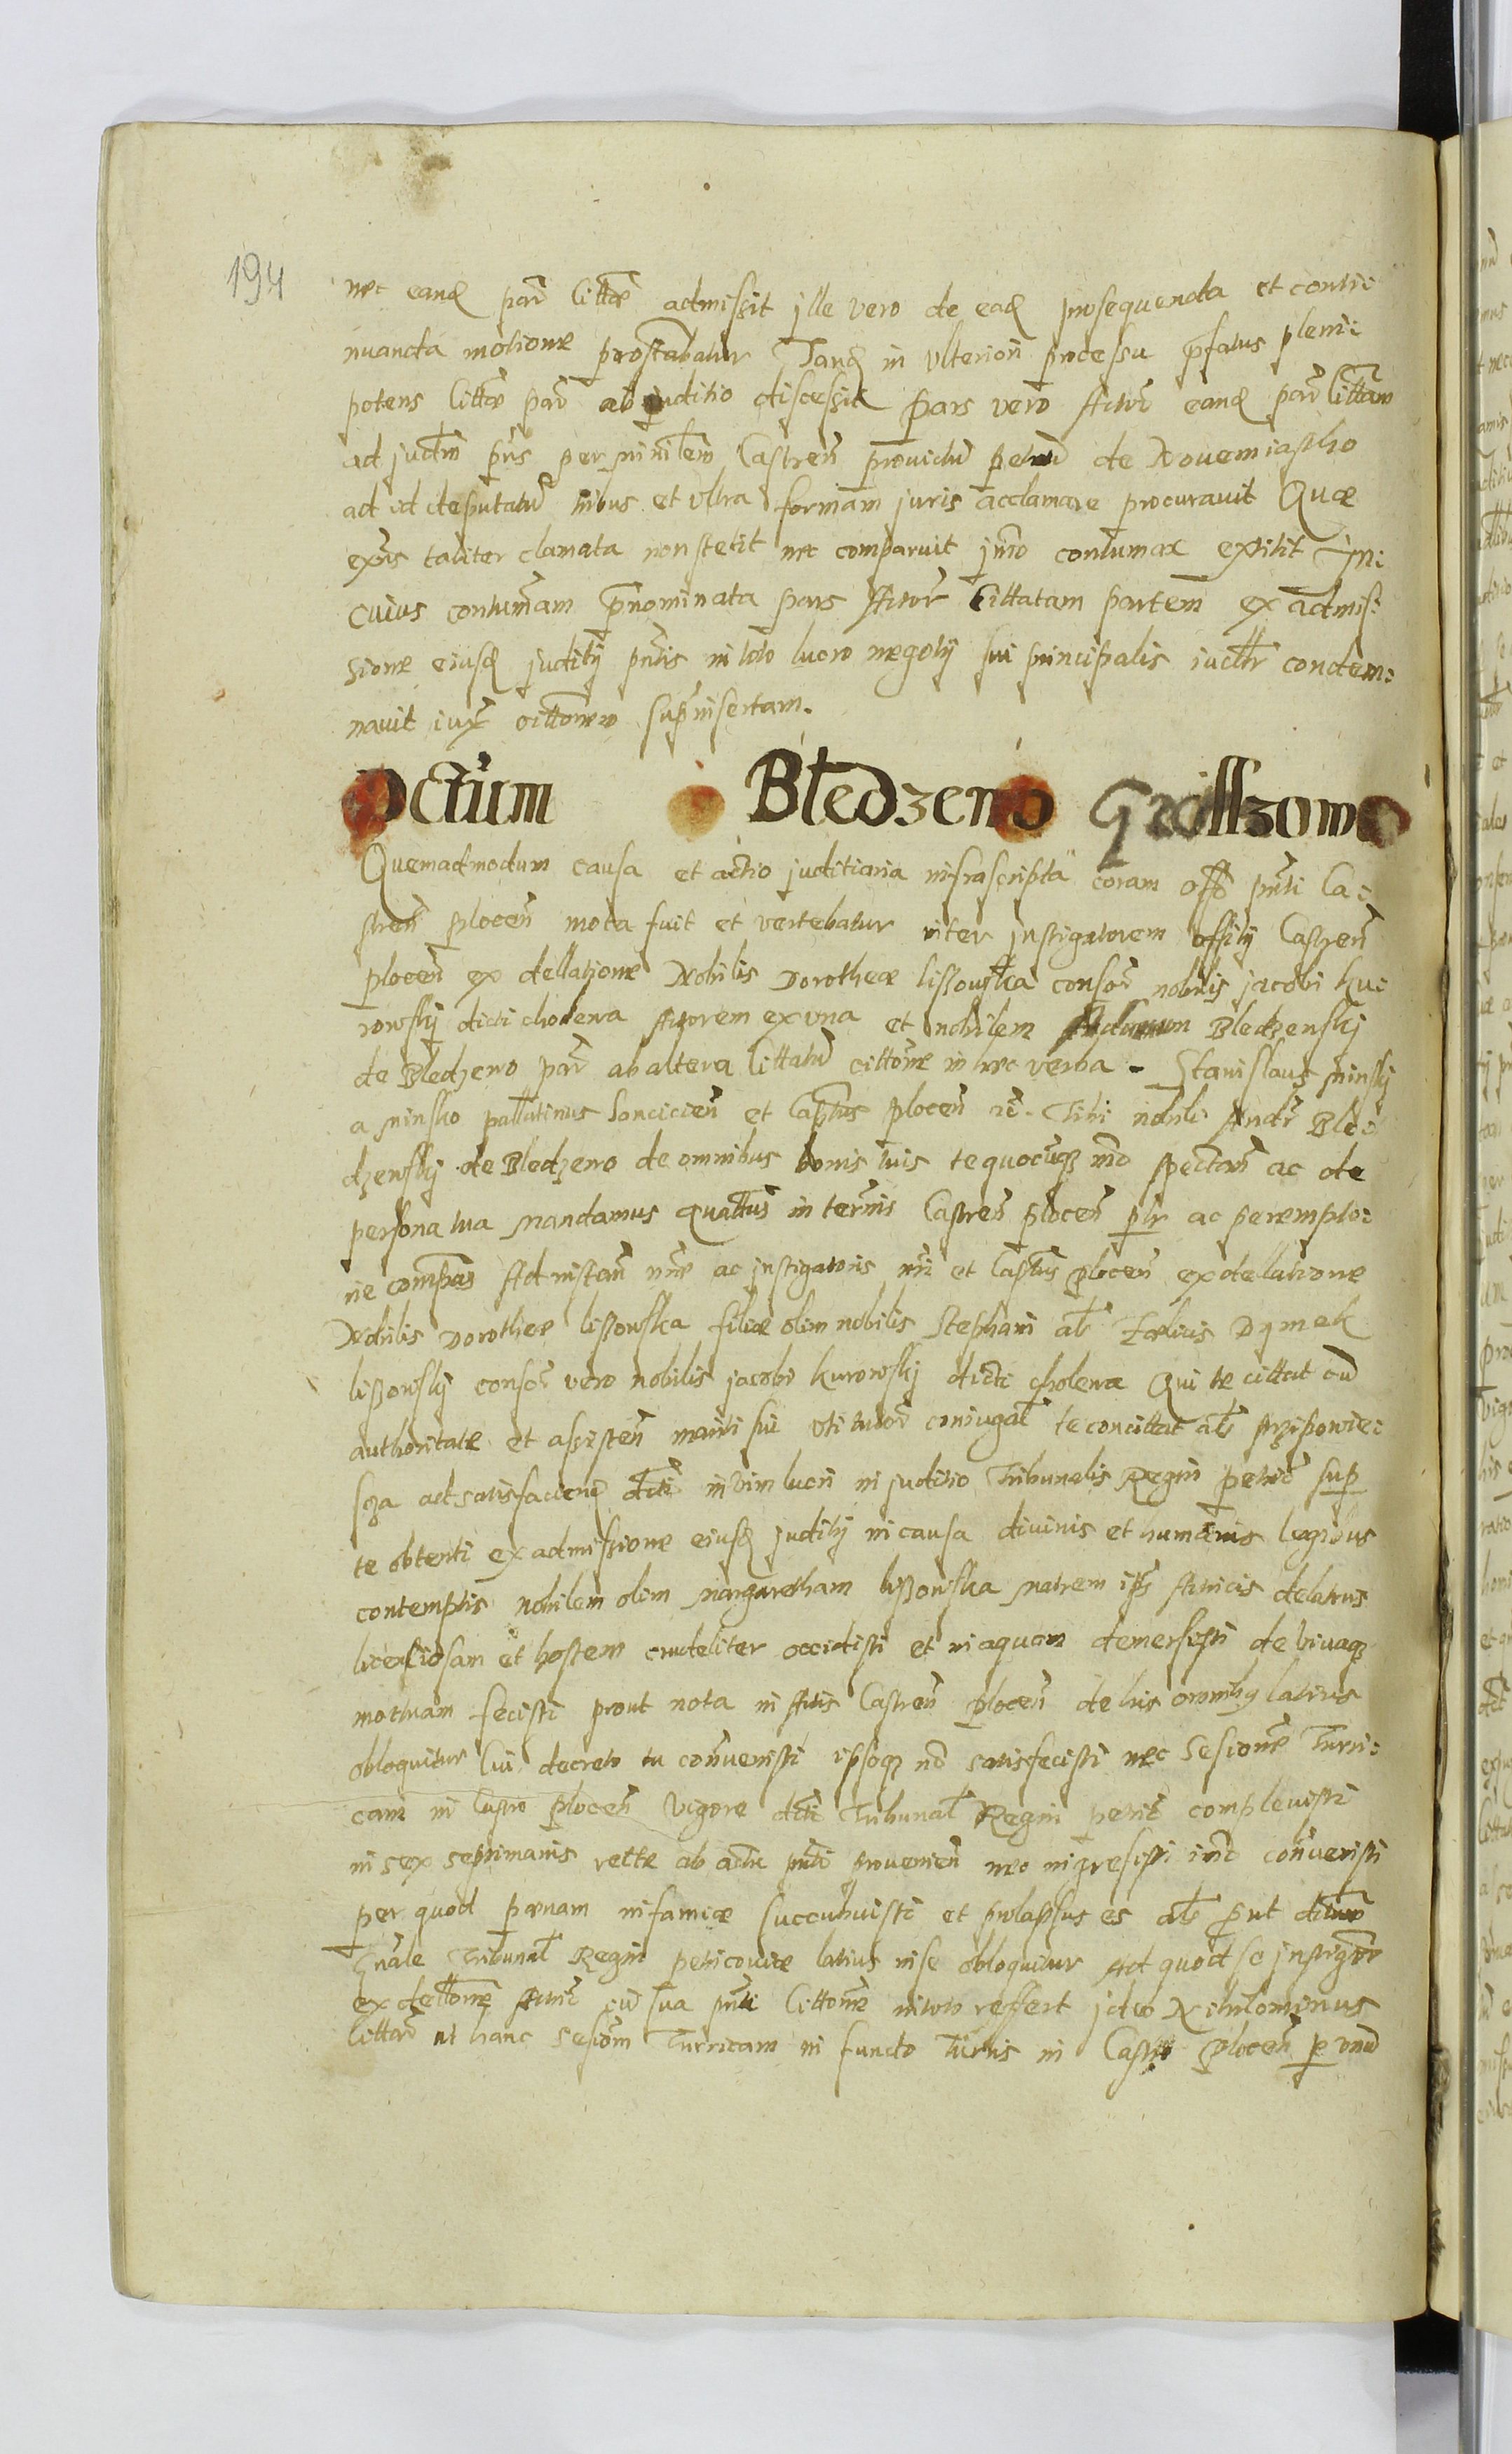 194
nec eand par litte admissit jlle vero de ead prosequenda et conti:
nuanda motione prostabatur Tand in vlteriori processu pfatus pleni:
potens litte par ab juditio discessit Pars vero Actor eand par littam
ad judm pns per minlem Castren prouidu petru de Nouemiastho
ad id deputatu tribus et vltra formam juris acclamare procurauit Quæ
exns taliter clamata non stetit nec comparuit jmo contumax extitit In:
cuius contumam pnominata pars Actor Cittatam partem ex admis:
sione eiusd juditij pntis in toto lucro negotij sui principalis iucltr condem:
nauit iux cittonem supinsertam.
Octum Błedzeno Grossзom
Quemadmodum causa et actio juditiaria infrascripta coram offo pnti Ca:
stren plocen mota fuit et vertebatur inter jnstigatorem offitij Castren
plocen ex dellatione Nobilis Dorotheæ lissowska consor nobilis jacobi ku:
rowskj dicti cholewa Actorem ex vna et nobilem Bledzenskj
de Bledzeno par ab altera Cittatu cittone in hæc verba – Stanislaus minskj
a minsko pallatinus lancicien et Captus plocen rc. Tibi nobili Andr Ble:
dzenskj de Bledzeno de omnibus bonis tuis te quocuqz mo spectan ac de
persona tua mandamus quattus in termis Castren plocen plr ac perempto:
rie compas Ad instan nræ ac jnstigatoris nri et Captus plocen ex dellatione
Nobilis Dorotheæ lissowska filiæ olim nobilis Stephani als Fœlicis Dymek
lissowskj consor vero nobilis jacobi kurowskj dicti cholewa Qui te cittat cu
authoritate et assisten mariti sui vti tutor coniugal te concittat als przipowie:
scza ad satisfaciend dcti in vim lucri in juditio Tribunalis Regni petric sup
te obtenti ex admissione eiusd juditij in causa diuinis et humanis legibus
contemptis nobilem olim margaretham lissowska matrem ips Actricis delatris
licenciosam et hostem crudeliter occidisti et in aquam demersisti de viuaqz
mortuam fecisti prout nota in Actis Castren plocen de his omnibq latius
obloquitur Cui decreto tu conuenisti ipsoqz no satisfecisti nec sesione Turri:
cam in Castro plocen vigore dcti Tribunal Regni petric compleuisti
in sex septimanis rette ab actu pnti prouenien nec ingressisti imo conuenisti
per quod pœnam infamiæ succubuisti et prolapsus es als put
Tnale Tribunal Regni petricouiæ latius in se obloquitur Ad quod se jnstigtor
ex dellone Actric cu sua pnti Cittone in toto reffert jdeo Nihilominus
Cittar vt hanc sesiom Turricam in fundo Turris in Castro plocen p vnu